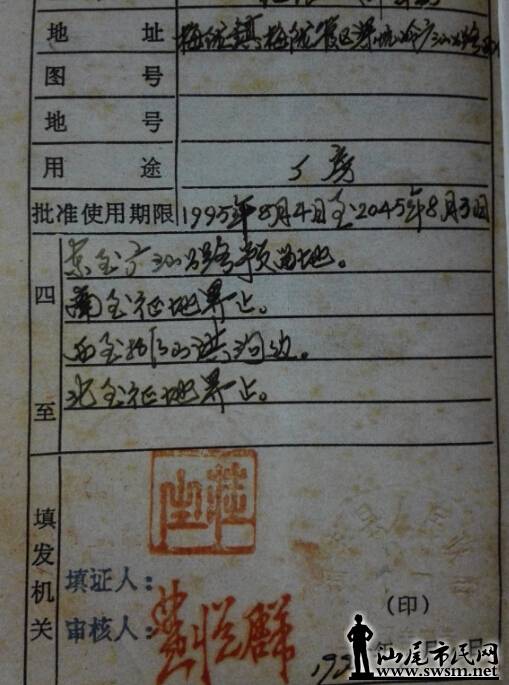 地址 梅陇镇梅陇管区深坑岭广汕公路
图号
地号
用途 厂房
批准使用期限 1995年8月4日至2045年8月3日
四至
东至广汕公路预留地。
南至征地界止。
西至 山洪沟边。
北至征地界止。
填发机关
填证人：
审核人：
(印)
汕尾市民网
www.swsm.net